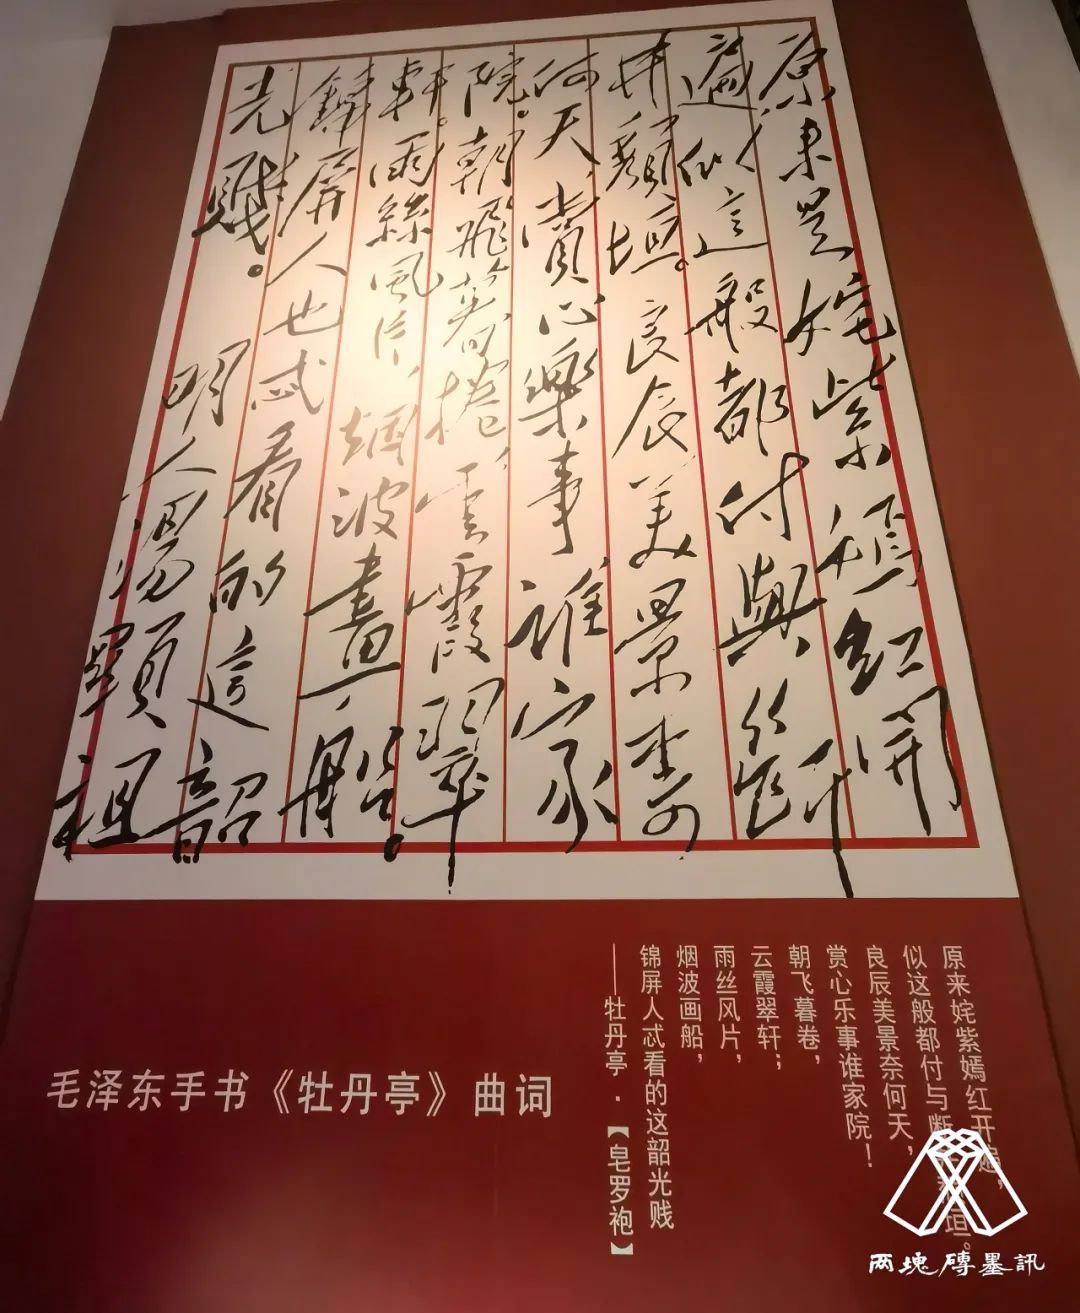 原來是姹紫嫣红開
遍,似這般都付與斷
井頹垣。良辰美景奈
何天,賞心樂事誰家
院。朝飛暮捲,雲霞翠
軒。雨絲風片,烟波畫船。
錦屏人也忒看的這韶
光賤。 明人湯顯祖
原来姹紫嫣红开遍,
似这般都付与断垣。
良辰美景奈何天,
赏心乐事谁家院!
朝飞暮卷,
云霞翠轩;
雨丝风片,
烟波画船,
锦屏人忒看的这韶光贱
——牡丹亭·【皂罗袍】
毛泽东手书《牡丹亭》曲词
两塊磚墨訊